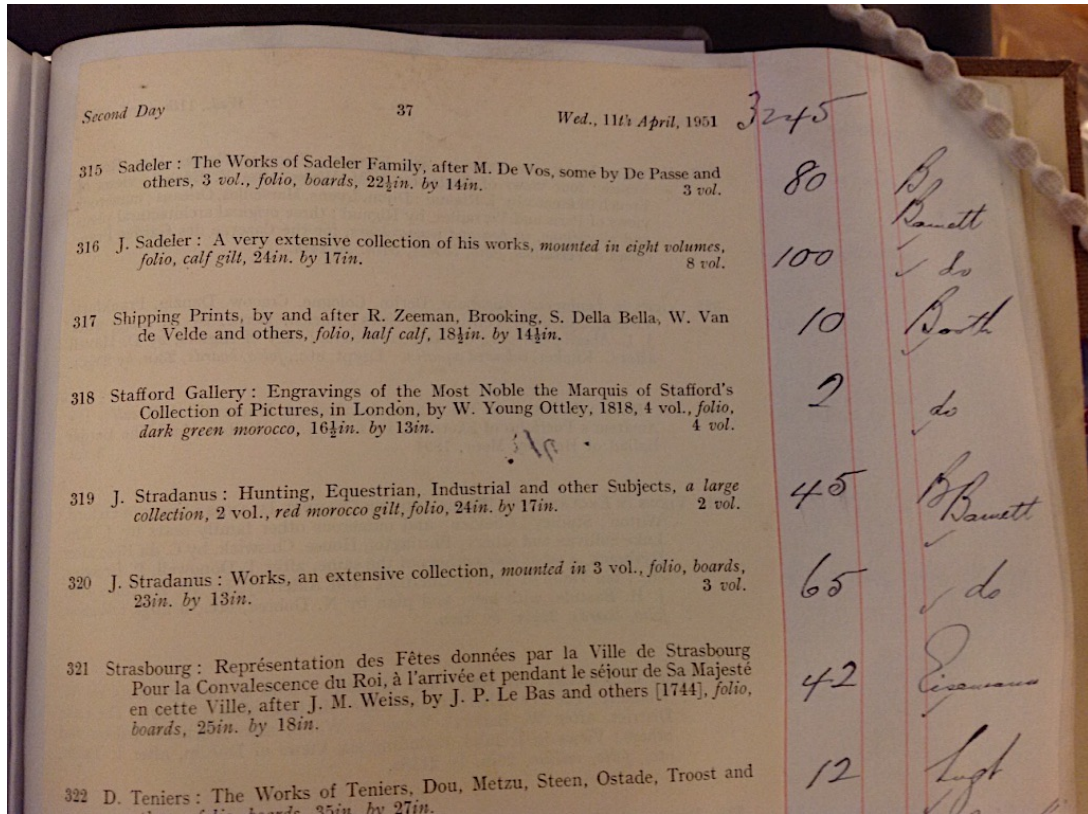 Second Day 37 Wed., 11th April, 1951 3245
315 Sadeler : The Works of Sadeler Family, after M. De Vos, some by De Passe and
others, 3 vol., folio, boards, 22½in. by 14in. 3 vol. 80 B
Barnett
316 J. Sadeler : A very extensive collection of his works, mounted in eight volumes,
folio, calf gilt, 24in. by 17in. 8 vol. 100 ✓ do
317 Shipping Prints, by and after R. Zeeman, Brooking, S. Della Bella, W. Van
de Velde and others, folio, half calf, 18½in. by 14½in. 10
318 Stafford Gallery : Engravings of the Most Noble the Marquis of Stafford's
Collection of Pictures, in London, by W. Young Ottley, 1818, 4 vol., folio,
dark green morocco, 16½in. by 13in. 4 vol. 2 do
319 J. Stradanus : Hunting, Equestrian, Industrial and other Subjects, a large
collection, 2 vol., red morocco gilt, folio, 24in. by 17in. 2 vol. 45 B Barnett
320 J. Stradanus : Works, an extensive collection, mounted in 3 vol., folio, boards,
23in. by 13in. 3 vol. 65 ✓ do
321 Strasbourg : Représentation des Fêtes données par la Ville de Strasbourg
Pour la Convalescence du Roi, à l'arrivée et pendant le séjour de Sa Majesté
en cette Ville, after J. M. Weiss, by J. P. Le Bas and others [1744], folio,
boards, 25in. by 18in. 42 Eisemann
322 D. Teniers : The Works of Teniers, Dou, Metzu, Steen, Ostade, Troost and 12 Lugt
folio boards, 35in. by 27in.